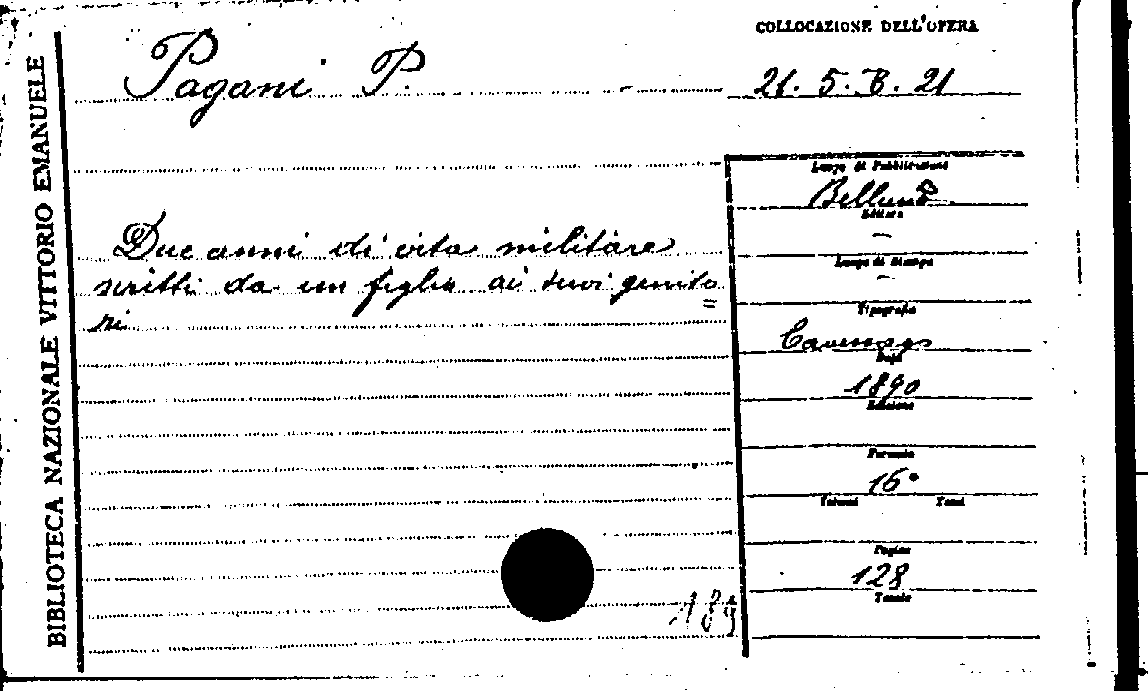 BIBLIOTECA NAZIONALE VITTORIO EMANUELE
COLLOCAZIONE DELL'OPERA
Pagani P.
21. 5. B. 21
Due anni di vita militare
scritti da un figlio ai suoi genito
=
ri
Luogo di Pubblicazione
Belluno
Editore
—
Luogo di Stampa
—
Tipografia
Cavessago
Data
1890
Edizione
Formato
16°
Volumi Tomi
Pagine
128
Tavole
189